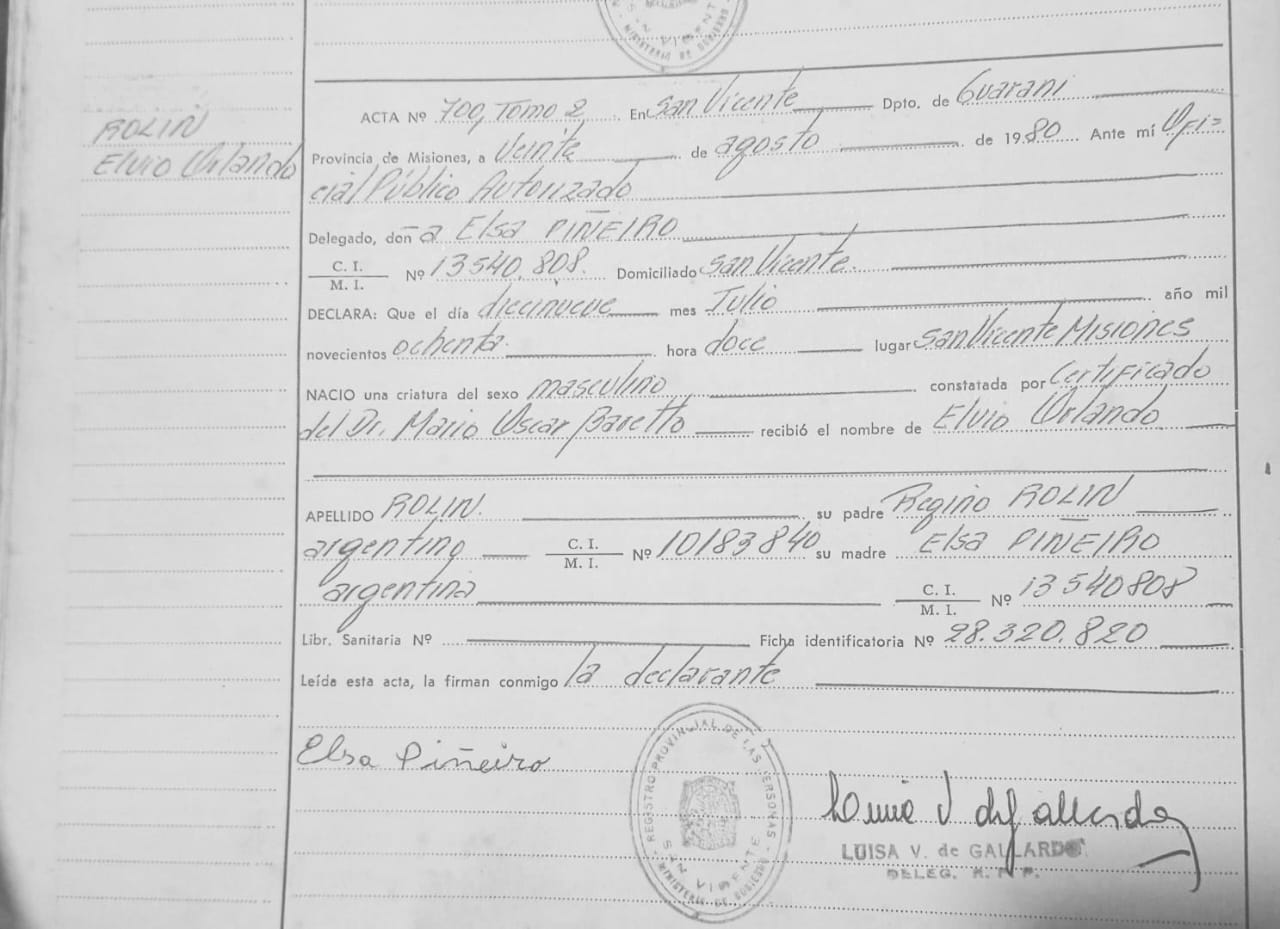 SAN VICENTE
MINISTERIO DE GOBIERNO
ROLIN
Elvio Orlando
ACTA Nº 700, Tomo 2 En San Vicente Dpto. de Guaraní
Provincia de Misiones, a Veinte de agosto de 1980 Ante mí Ofi=
cial Público Autorizado
Delegado, don a Elsa PIÑEIRO
C. I.
M. I. Nº 13 540.808. Domiciliado San Vicente.
DECLARA: Que el día diecinueve mes Julio año mil
novecientos ochenta. hora doce lugar San Vicente Misiones
NACIO una criatura del sexo masculino constatada por Certificado
del Dr. Mario Oscar Baretto recibió el nombre de Elvio Orlando
APELLIDO ROLIN. su padre Regino ROLIN
argentino C. I.
M. I. Nº 10183840 su madre Elsa PIÑEIRO
argentina C. I.
M. I. Nº 13 540808
Libr. Sanitaria Nº Ficha identificatoria Nº 28.320.820
Leída esta acta, la firman conmigo la declarante
Elsa Piñeiro
REGISTRO PROVINCIAL DE LAS PERSONAS
SAN VICENTE
MINISTERIO DE GOBIERNO
LUISA V. de GALLARDO
DELEG. R. P. P.